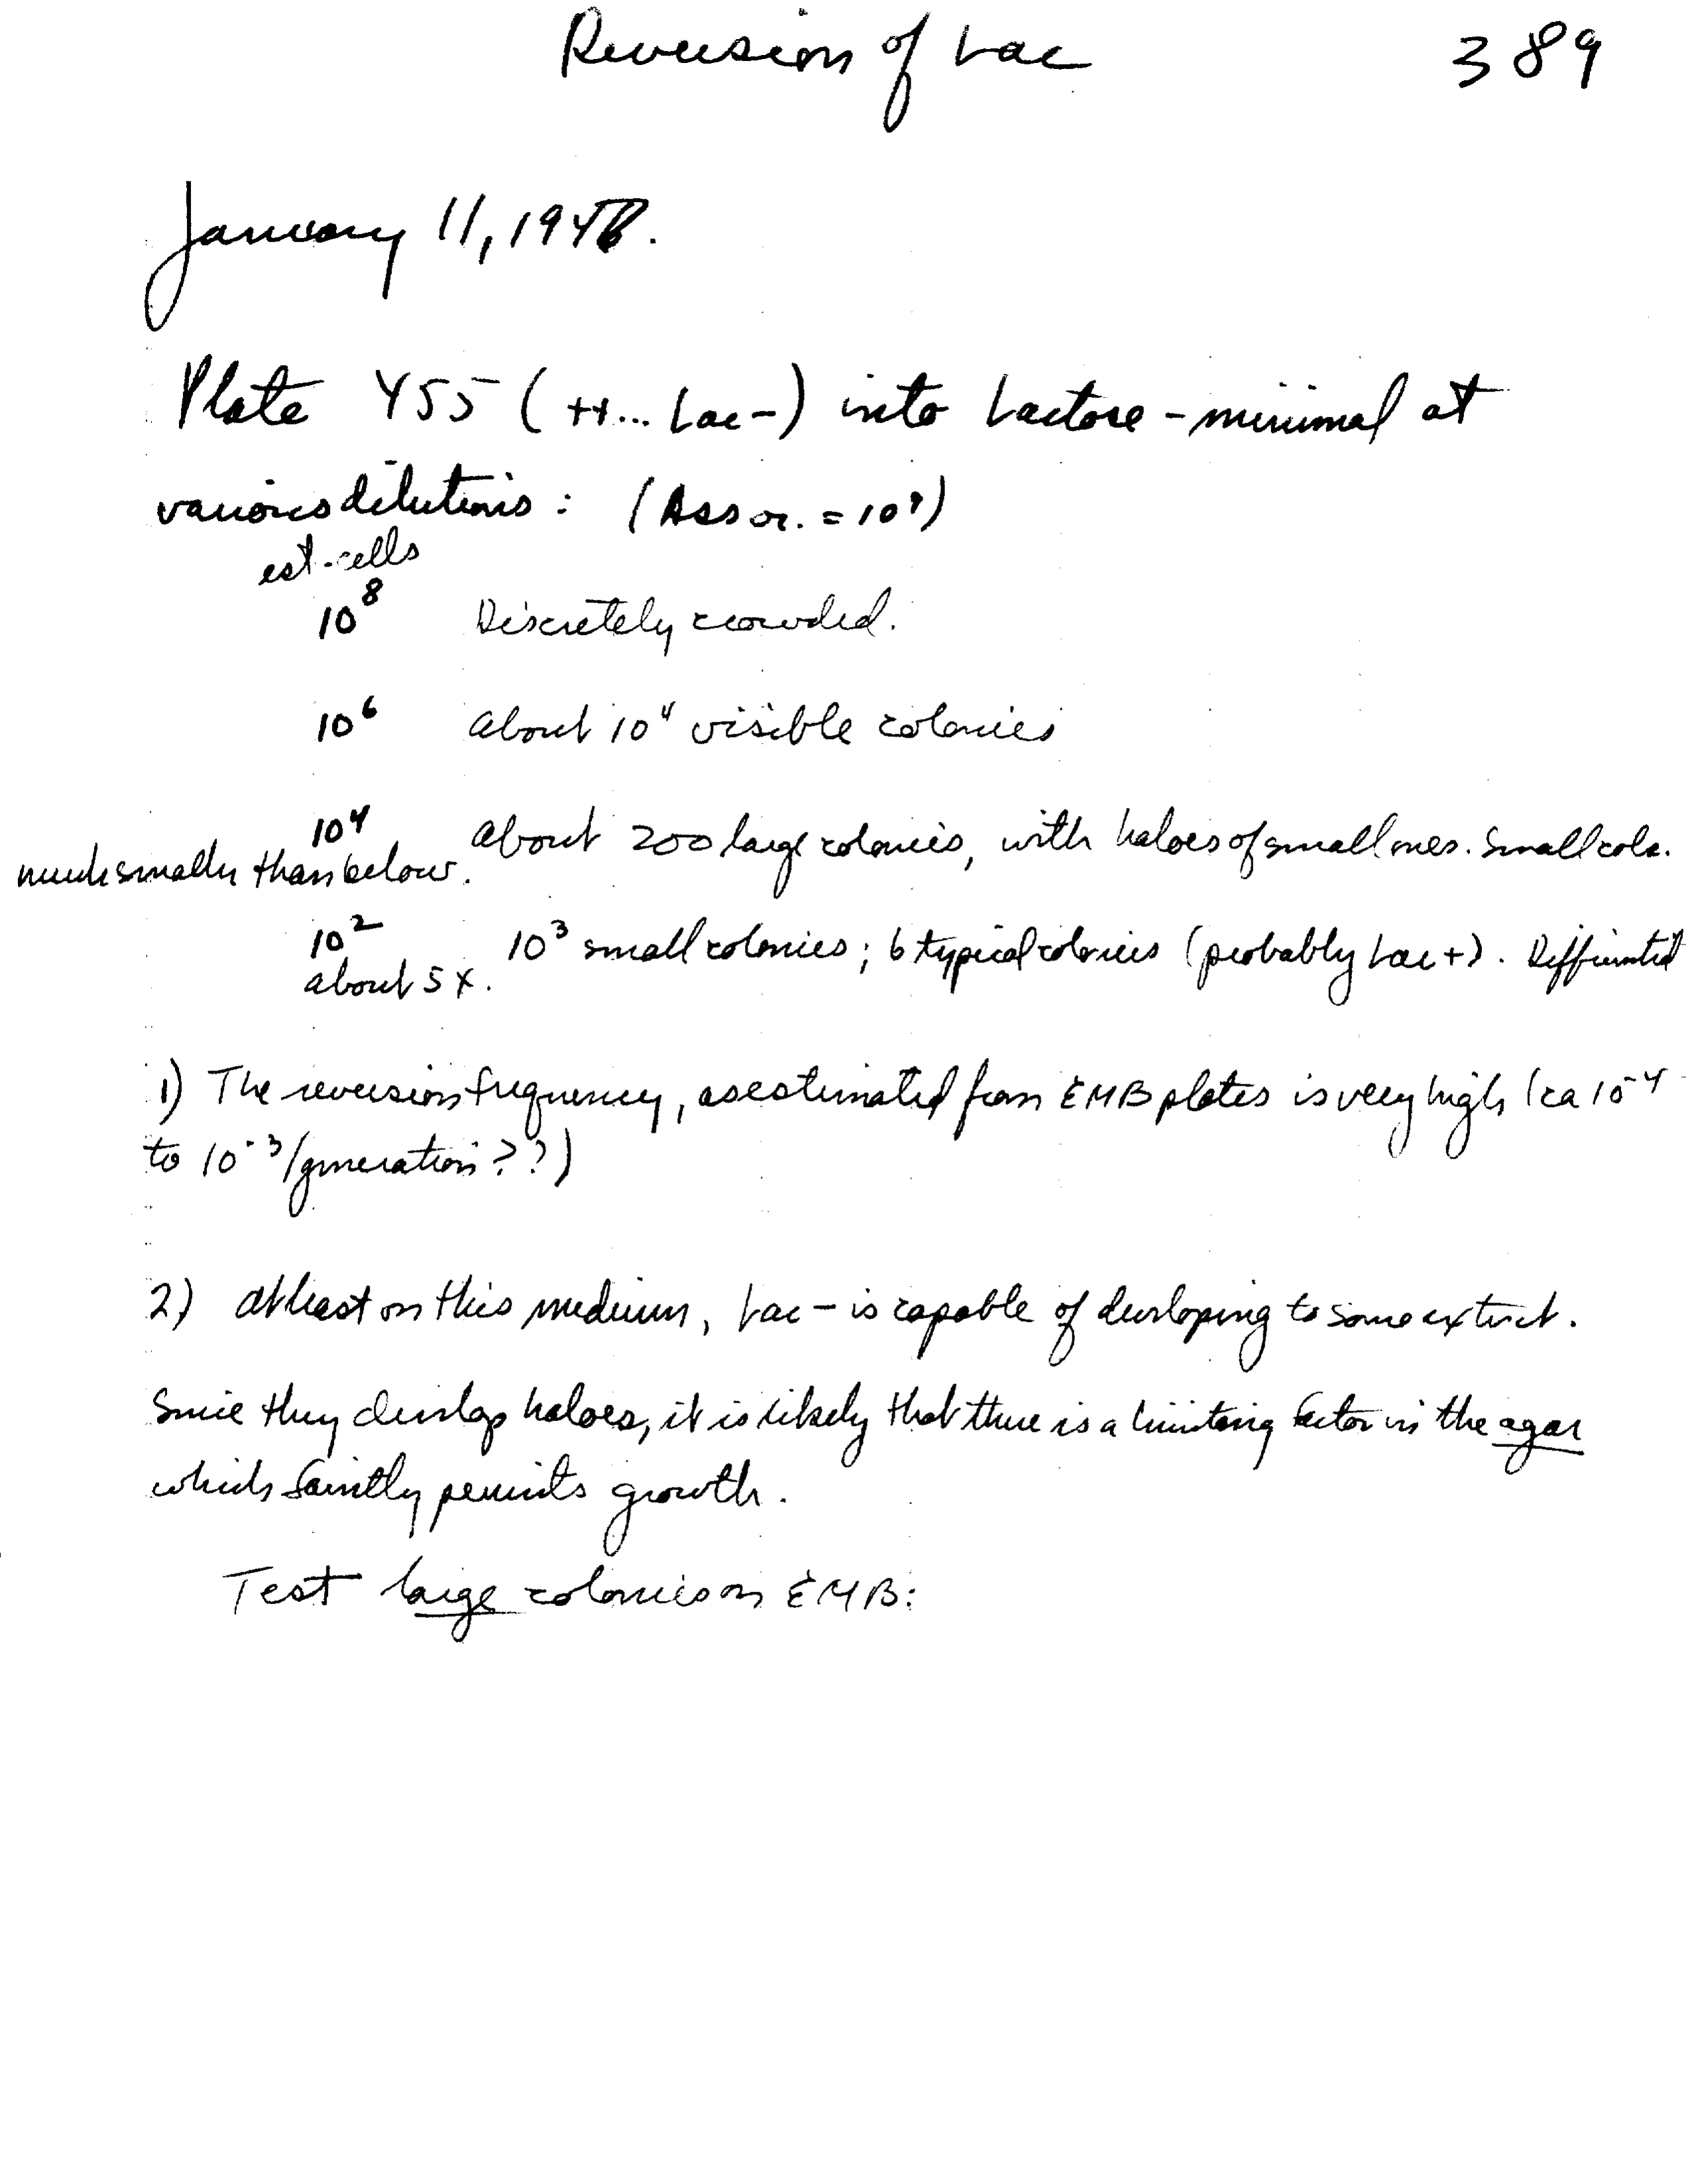 Reversion of Lac 389
January 11, 1948.
Plate Y55 (++... Lac-) into Lactose-minimal at
various dilutions: (Assn. = 10⁹)
est. cells
10⁸ Discretely crowded.
10⁶ About 10⁴ visible colonies
10⁴ About 200 large colonies, with haloes of small ones. Small cols.
much smaller than below.
10² 10³ small colonies; 6 typical colonies (probably Lac+). Differented
about 5x.
1) The reversion frequency, as estimated from EMB plates is very high (ca 10⁻⁴
to 10⁻³/generation??)
2) At least on this medium, Lac- is capable of developing to some extent.
Since they develop haloes, it is likely that there is a limiting factor in the agar
which faintly permits growth.
Test large colonies on EMB: